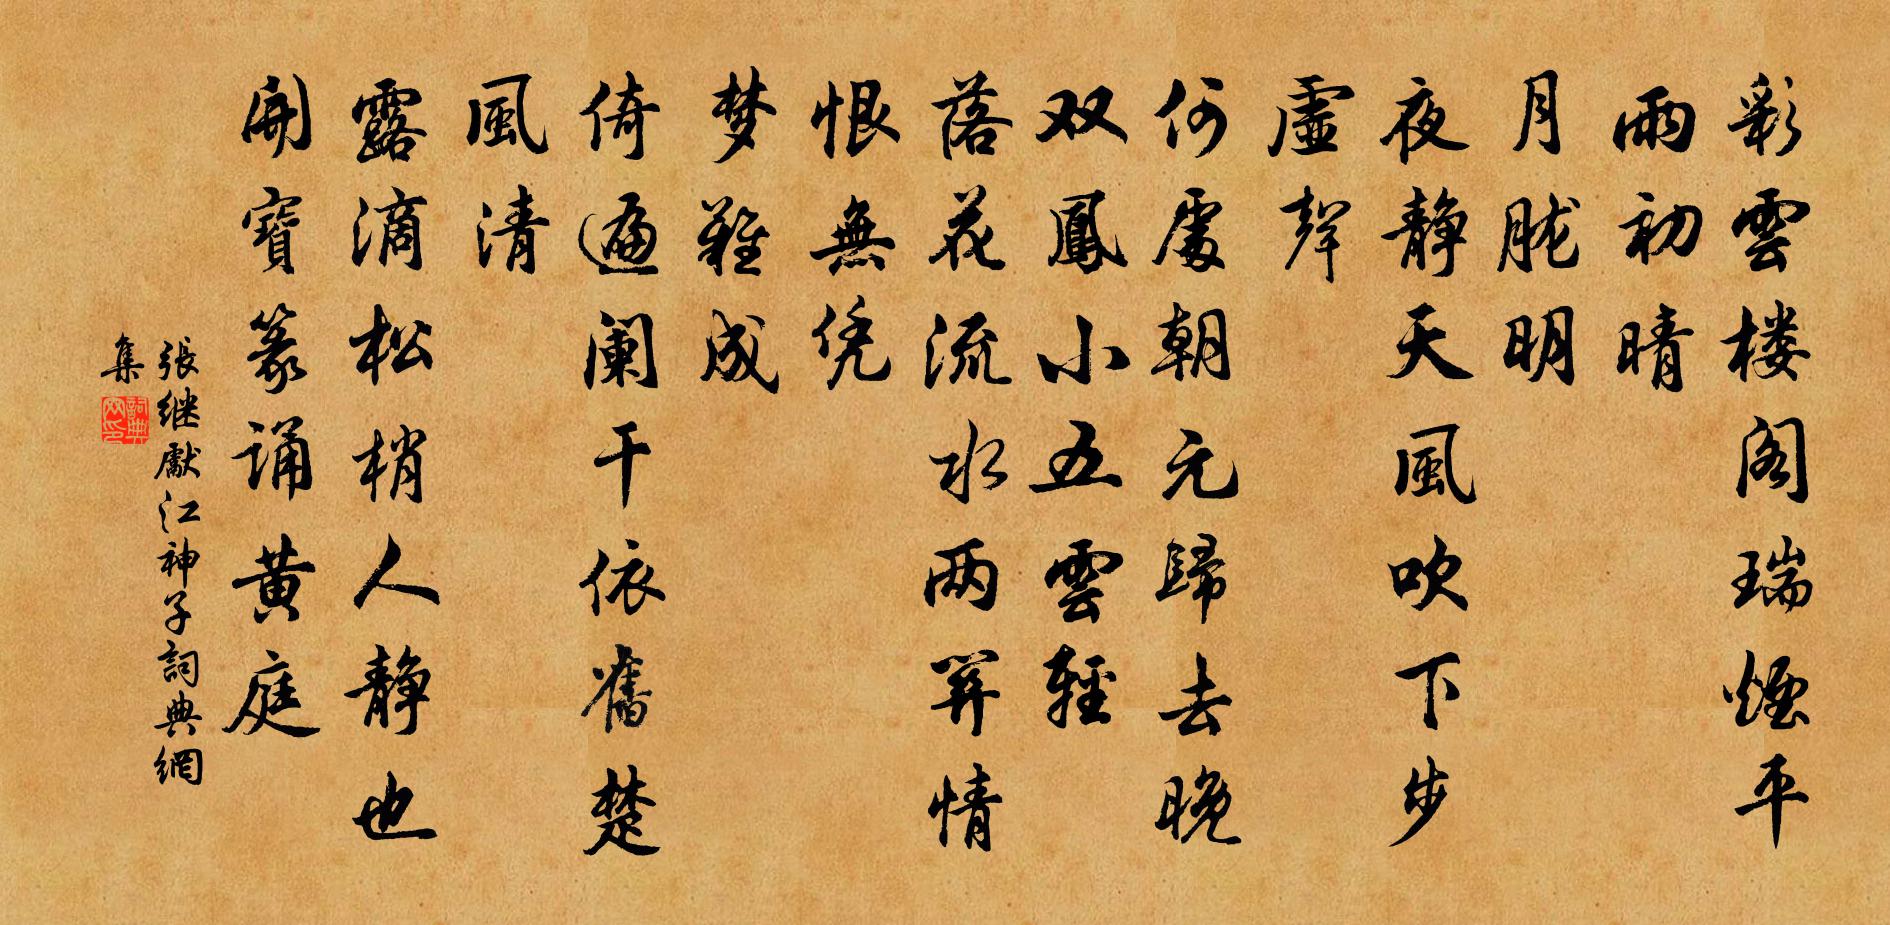 彩雲楼阁瑞煙平
雨初晴
月胧明
夜静天風吹下步
虛聲
何處朝元歸去晚
双鳳小五雲輕
落花流水两関情
恨無凭
梦難成
倚遍阑干依舊楚
風清
露滴松梢人静也
開寶篆诵黄庭
張继獻江神子詞典網
集
詞典
网印